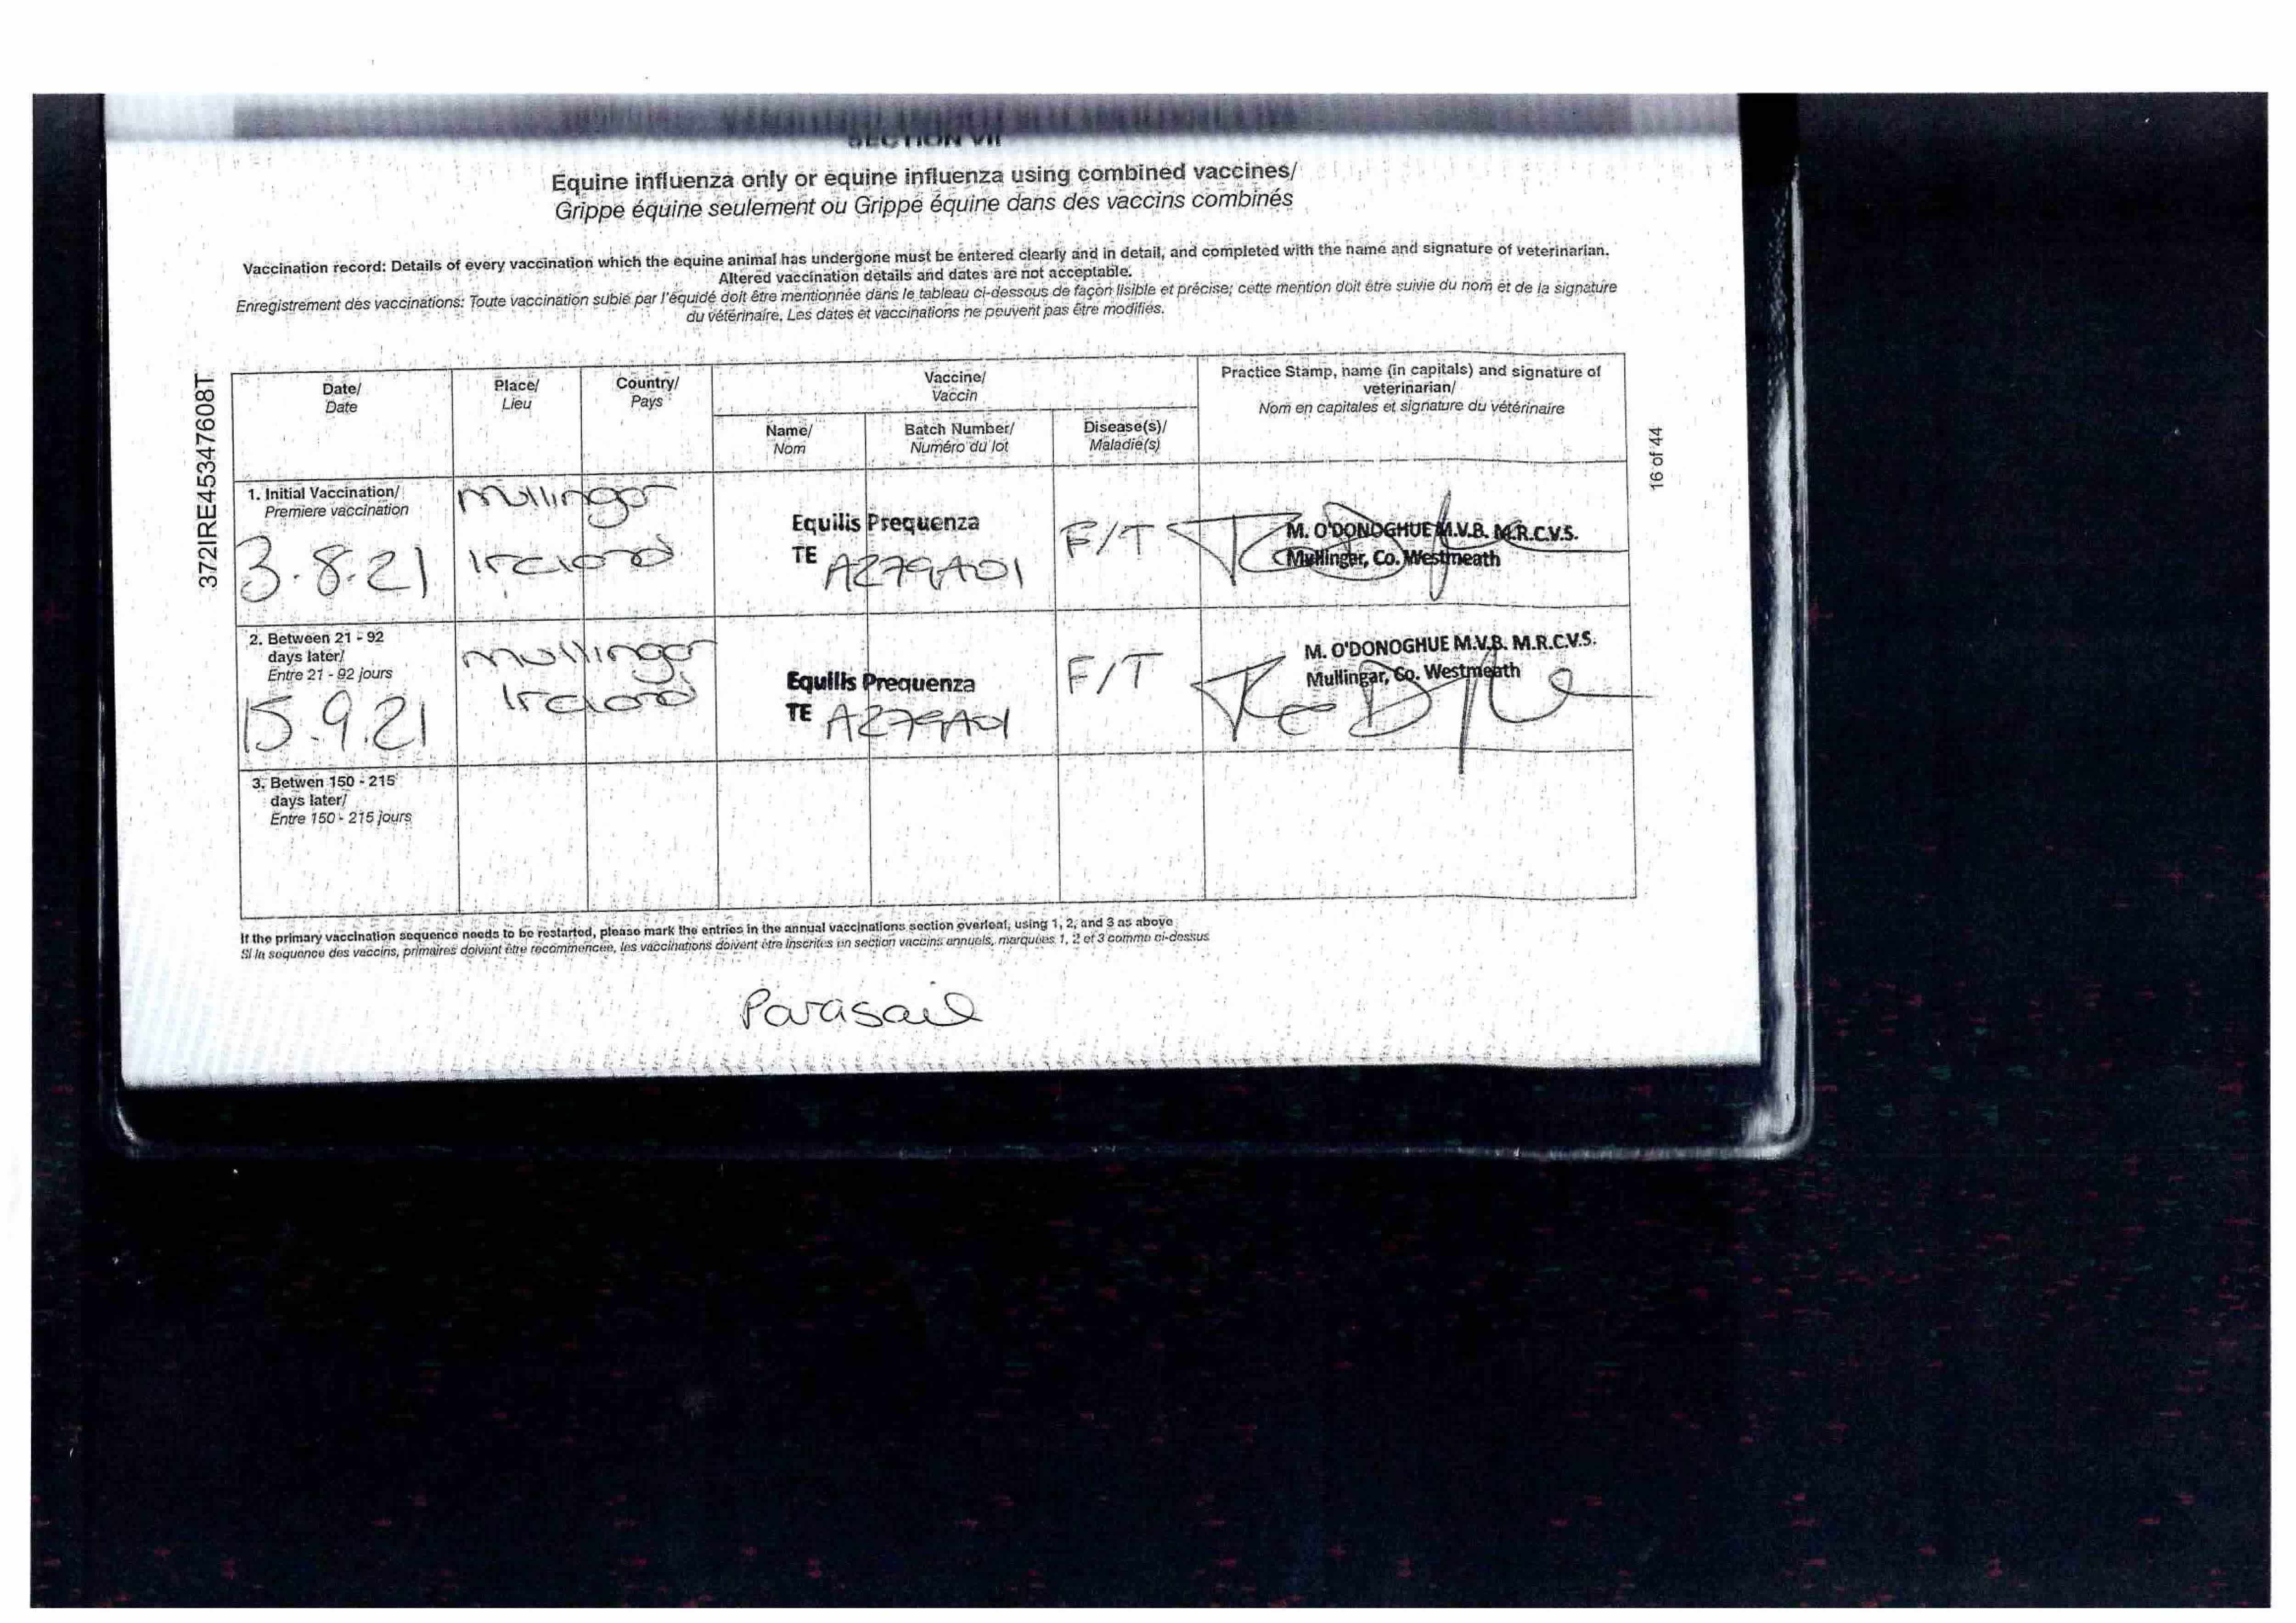 SECTION VII
Equine influenza only or equine influenza using combined vaccines/
Grippe équine seulement ou Grippe équine dans des vaccins combinés
Vaccination record: Details of every vaccination which the equine animal has undergone must be entered clearly and in detail, and completed with the name and signature of veterinarian.
Altered vaccination details and dates are not acceptable.
Enregistrement des vaccinations: Toute vaccination subie par l'équidé doit être mentionnée dans le tableau ci-dessous de façon lisible et précise; cette mention doit être suivie du nom et de la signature
du vétérinaire. Les dates et vaccinations ne peuvent pas être modifiés.
372IRE45347608T
16 of 44
Date/
Date
Place/
Lieu
Country/
Pays
Vaccine/
Vaccin
Name/
Nom
Batch Number/
Numéro du lot
Disease(s)/
Maladie(s)
Practice Stamp, name (in capitals) and signature of
veterinarian/
Nom en capitales et signature du vétérinaire
1. Initial Vaccination/
Premiere vaccination
3.8.21
Mullingar
Ireland
Equilis Prequenza
TE A279A01
F/T
M. O'DONOGHUE M.V.B. M.R.C.V.S.
Mullingar, Co. Westmeath
2. Between 21 - 92
days later/
Entre 21 - 92 jours
15.9.21
Mullingar
Ireland
Equilis Prequenza
TE A279A01
F/T
M. O'DONOGHUE M.V.B. M.R.C.V.S.
Mullingar, Co. Westmeath
3. Betwen 150 - 215
days later/
Entre 150 - 215 jours
If the primary vaccination sequence needs to be restarted, please mark the entries in the annual vaccinations section overleaf, using 1, 2, and 3 as above
Si la sequence des vaccins, primaires doivent être recommencée, les vaccinations doivent être inscrites en section vaccins annuels, marquées 1, 2 et 3 comme ci-dessus
Parasail